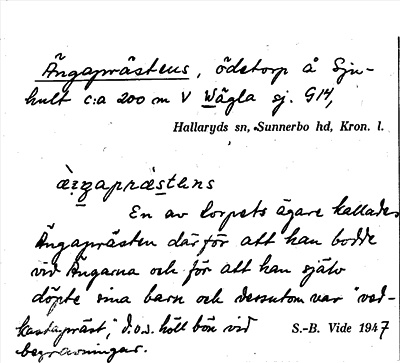 Ängaprästens, ödetorp å Sju-
hult c:a 200 m V Vägla sj. G14,
Hallaryds sn, Sunnerbo hd, Kron. l.
æ̀ŋapræstens
En av torpets ägare kallades
Ängaprästen därför att han bodde
vid Ängarna och för att han själv
döpte sina barn och dessutom var "ved-
kastapräst," d.v.s. höll bön vid S.-B. Vide 1947
begravningar.